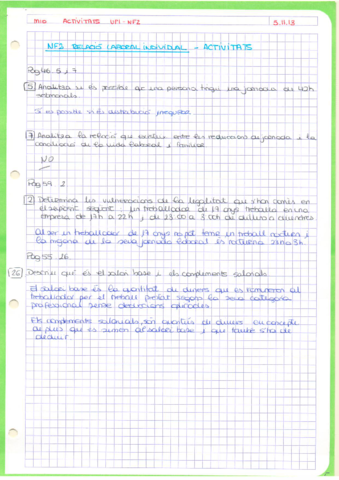 M10 ACTIVITATS UF1 - NF2 5.11.13
NF2 RELACIÓ LABORAL INDIVIDUAL - ACTIVITATS
Pàg 40. 5, 7
5 Analitza si és possible que una persona tingui una jornada de 42h
setmanals.
Si es possible si és distribució irregular.
7 Analitza la relació que existeix entre les reduccions de jornada i la
conciliació de la vida laboral i familiar.
NO
Pàg 54 2
2 Determina les vulneracions de la legalitat que s'han comès en
el supòsit següent: un treballador de 17 anys treballa en una
empresa de 17h a 22h i de 23.00 a 3.00h de dilluns a divendres
Al ser un treballador de 17 anys no pot fer un treball nocturn i
la majoria de la seva jornada laboral és nocturna 22h a 3h.
Pàg 55 26.
26 Descriu què és el salari base i els complements salarials.
El salari base és la quantitat de diners que es remuneren al
treballador per el treball prestat segons la seva categoria
professional sense deduccions aplicades.
Els complements salarials, són quantitats de diners en concepte
de plus que es sumen al salari base i que també s'ha de
deduir.